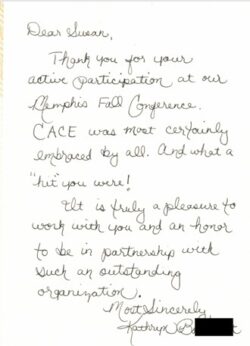 Dear Susan,
Thank you for your
active participation at our
Memphis Fall Conference.
CACE was most certainly
embraced by all. And what a
"hit" you were!
It is truly a pleasure to
work with you and an honor
to be in partnership with
such an outstanding
organization.
Most Sincerely
Kathryn B.